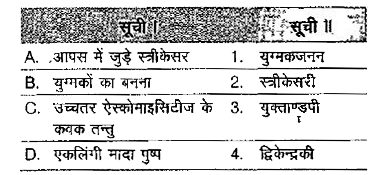 सूची I सूची II
A. आपस में जुड़े स्त्रीकेसर 1. युग्मकजनन
B. युग्मकों का बनना 2. स्त्रीकेसरी
C. उच्चतर ऐस्कोमाइसिटीज के 3. युक्ताण्डपी
कवक तन्तु
D. एकलिंगी मादा पुष्प 4. द्विकेन्द्रकी